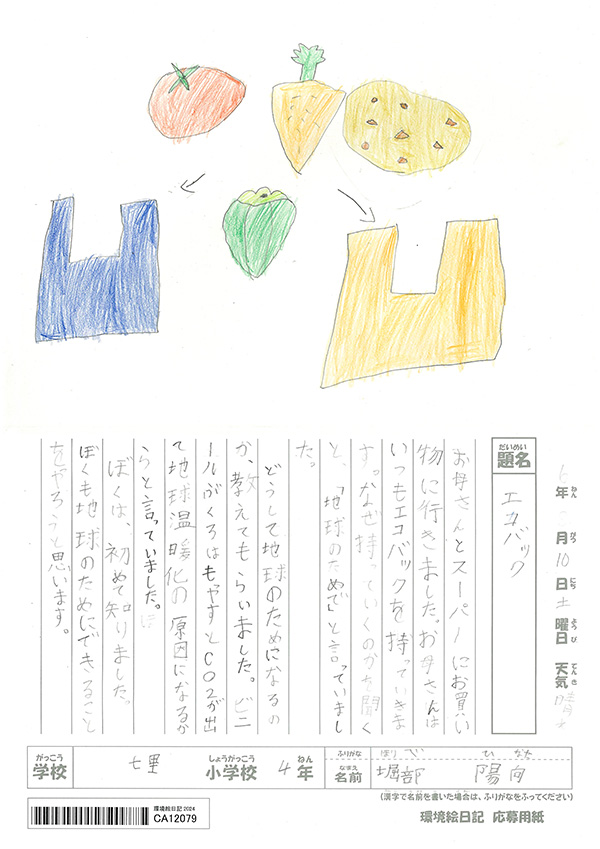 年 月10日土曜日 天気晴れ
ねん がつ にち ようび てんき
だいめい
題名
エコバック
お母さんとスーパーにお買い
物に行きました。お母さんは
いつもエコバックを持っていきま
す。なぜ持っていくのかを聞く
と、「地球のためで」と言っていまし
た。
どうして地球のためになるの
か、教えてもらいました。ビニ
ールぶくろはもやすとCO2が出
て地球温暖化の原因になるか
らと言っていました。
ぼくは、初めて知りました。
ぼくも地球のためにできること
をやろうと思います。
がっこう しょうがっこう ねん ふりがな ほりべ ひなた
学校 七里 小学校 4年 なまえ 名前 堀部 陽向
(漢字で名前を書いた場合は、ふりがなをふってください)
環境絵日記 2024
CA12079
環境絵日記 応募用紙